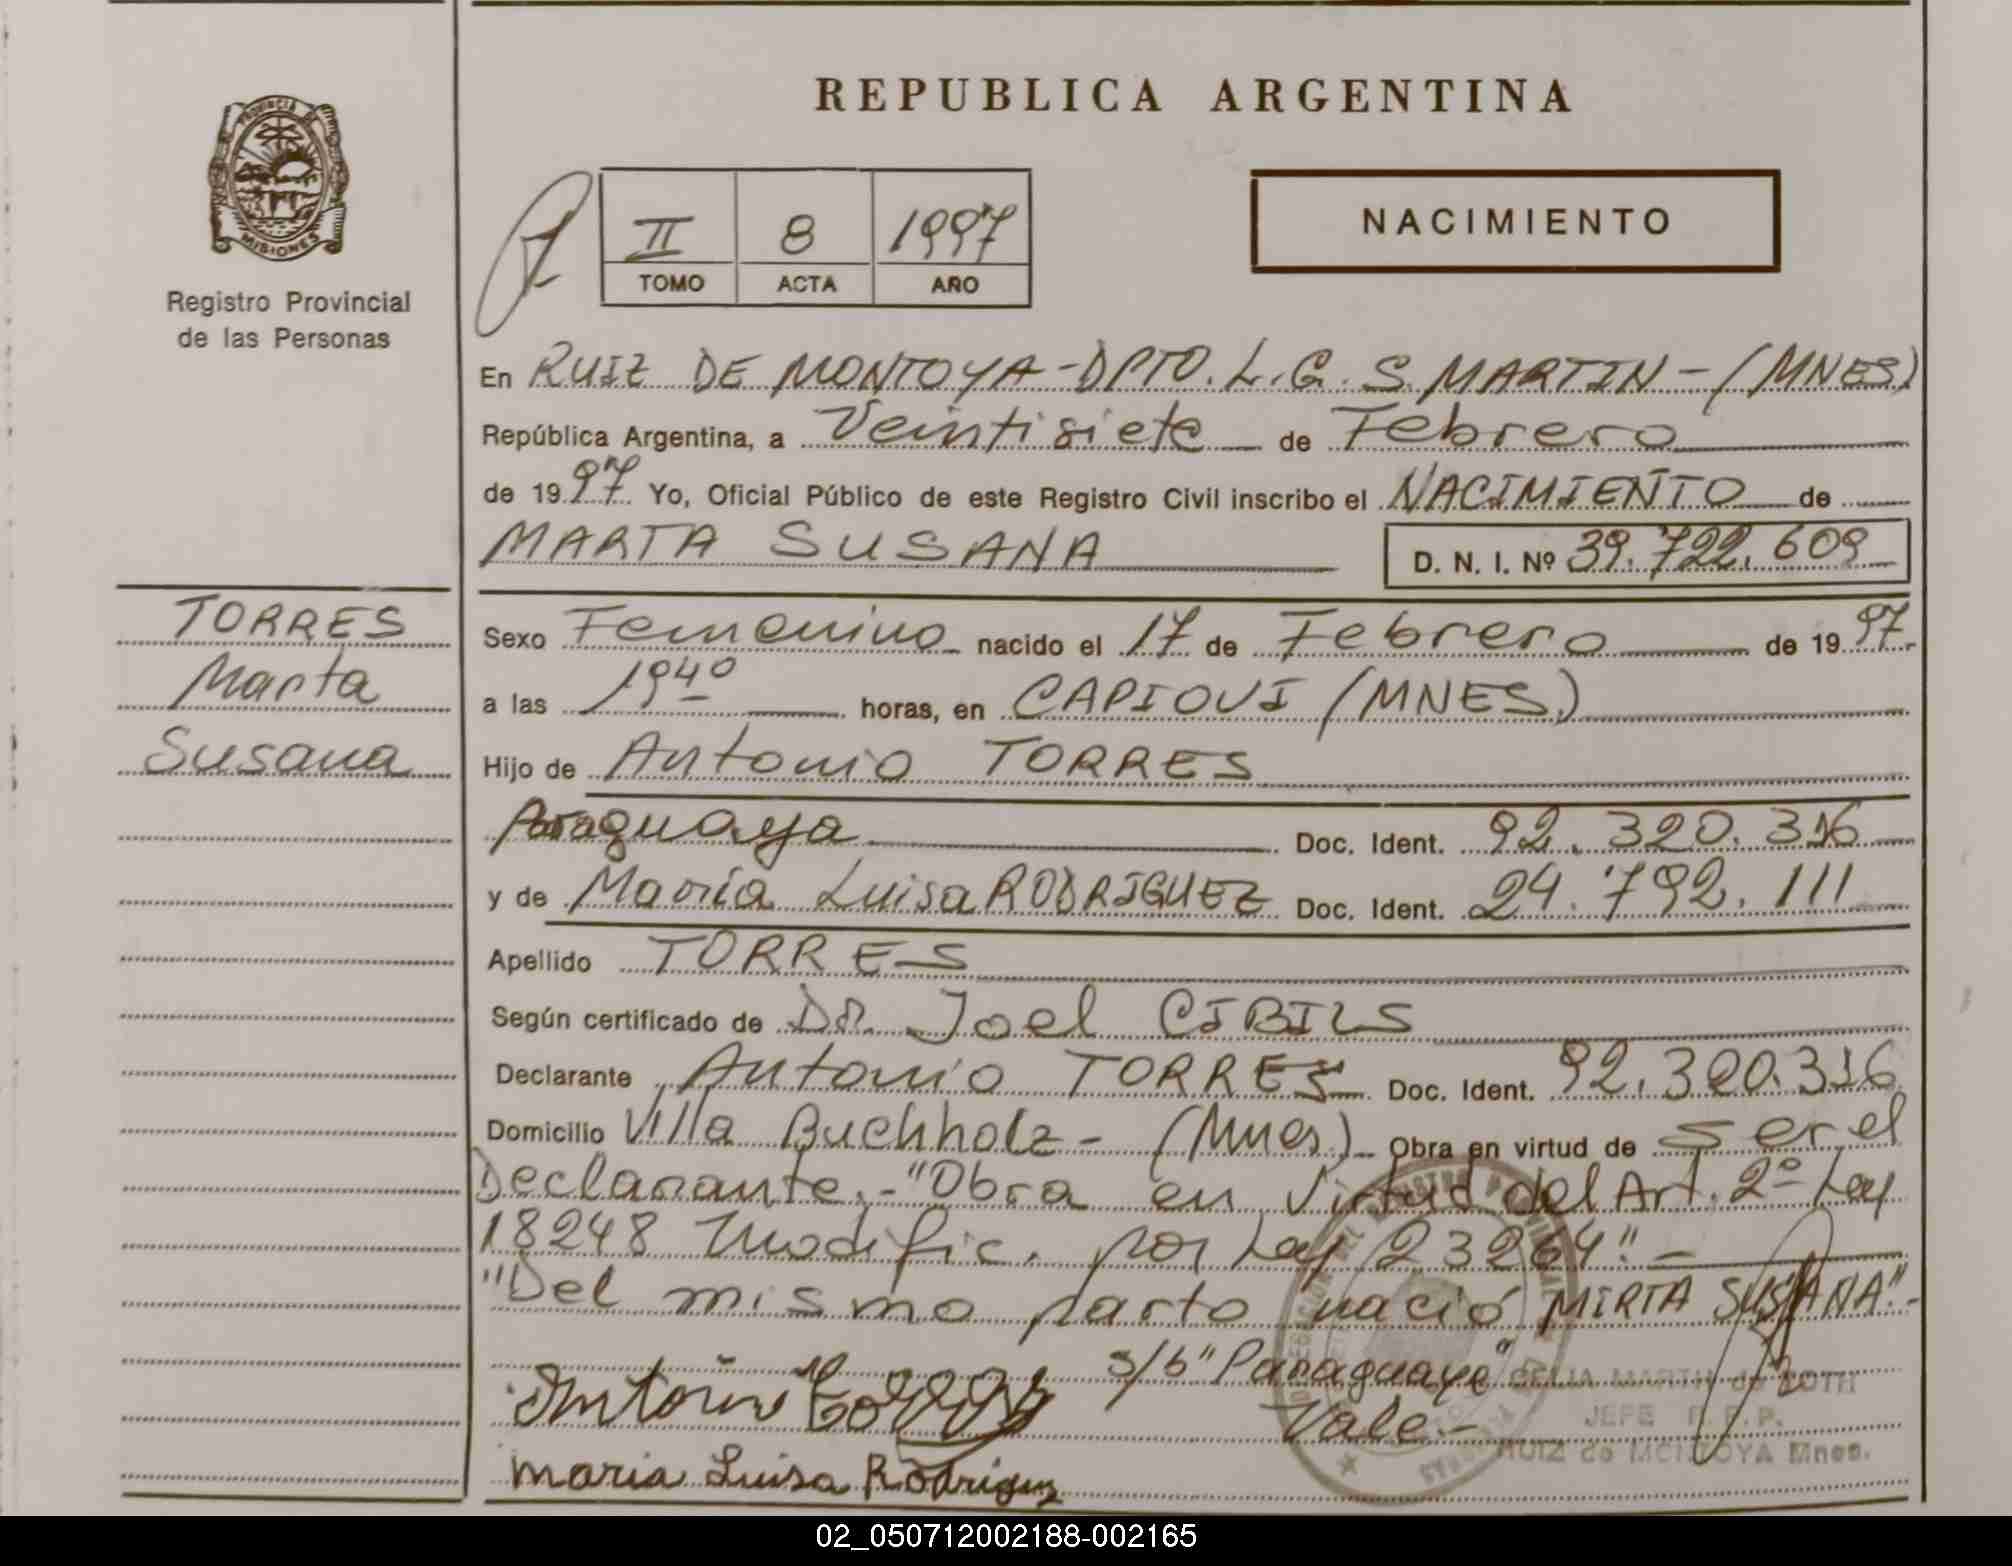 REPUBLICA ARGENTINA
PROVINCIA DE
MISIONES
Registro Provincial
de las Personas
II 8 1997
TOMO ACTA AÑO
NACIMIENTO
En RUIZ DE MONTOYA-DPTO. L.G.S. MARTIN-(MNES)
República Argentina, a Veintisiete de Febrero
de 1997 Yo, Oficial Público de este Registro Civil inscribo el NACIMIENTO de
MARTA SUSANA D. N. I. Nº 39.722.609
TORRES
Marta
Susana
Sexo Femenino nacido el 17 de Febrero de 1997
a las 19 40 horas, en CAPIOVI (MNES.)
Hijo de Antonio TORRES
Paraguaya Doc. Ident. 92.320.316
y de María Luisa RODRIGUEZ Doc. Ident. 24.792.111
Apellido TORRES
Según certificado de Dr. Joel CIBILS
Declarante Antonio TORRES Doc. Ident. 92.320.316
Domicilio Villa Buchholz-(Mnes.) Obra en virtud de ser el
Declarante.-"Obra en virtud del Art. 2º Ley
18248 modific. por Ley 23264".-
"Del mismo parto nació MIRTA SUSANA".-
s/b "Paraguaya"
Vale.-
Antonio Torres
Maria Luisa Rodriguez
CELIA MARTIN de ROTH
JEFE R.P.P.
RUIZ de MONTOYA Mnes.
02_050712002188-002165